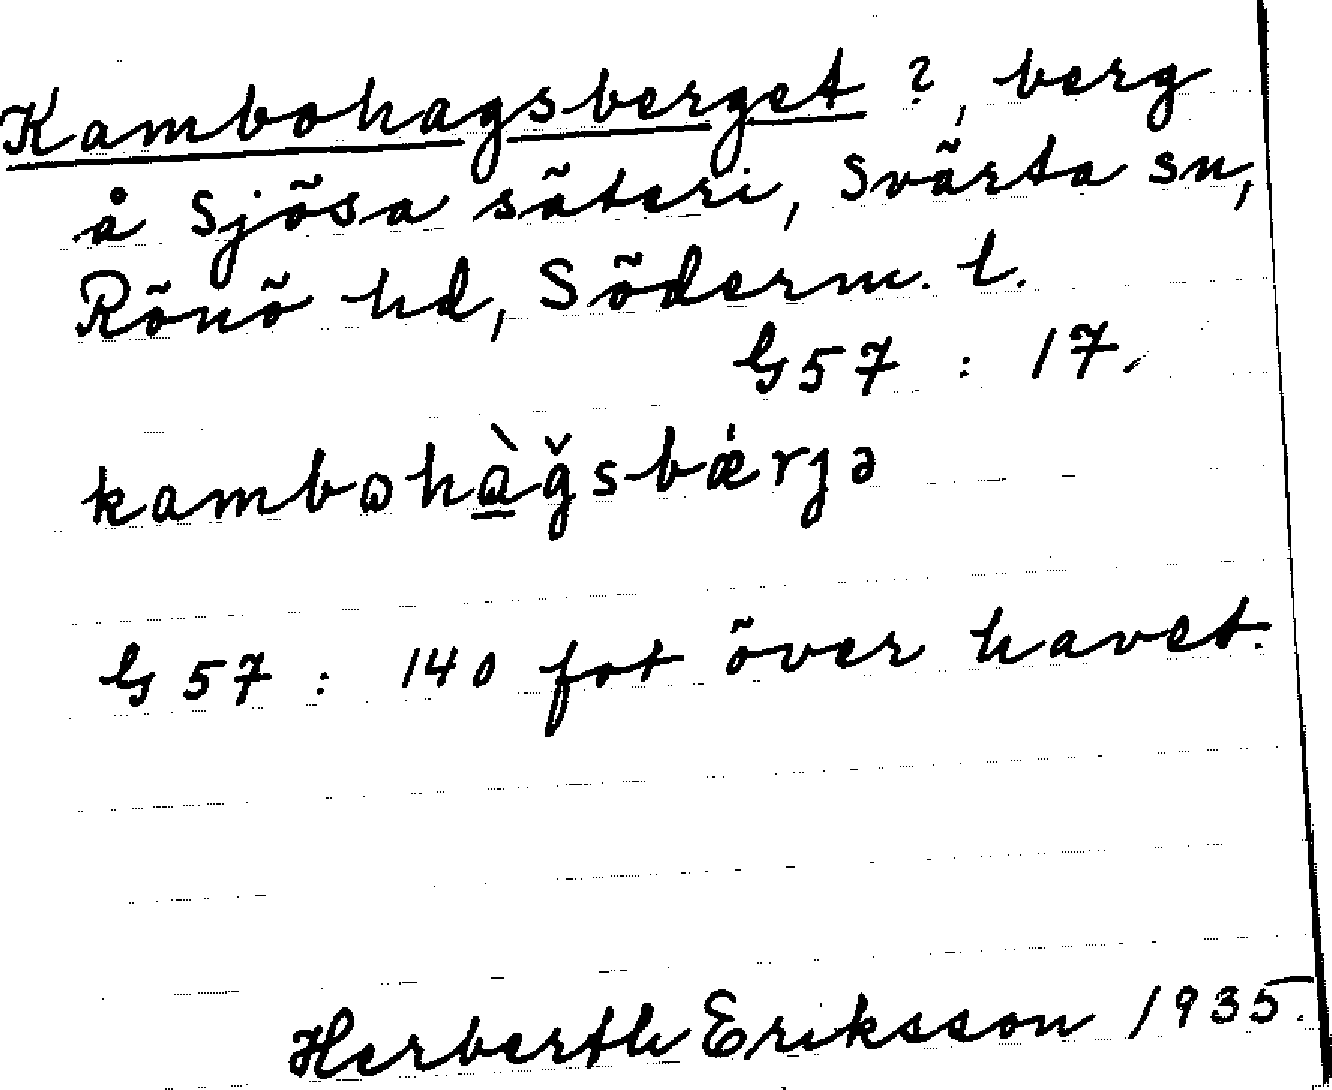 Kambohagsberget ?, berg
å Sjösa säteri, Svärta sn,
Rönö hd, Söderm. l.
G57 : 17.
kambohàğsbærjə
G 57 : 140 fot över havet.
Herberth Eriksson 1935.